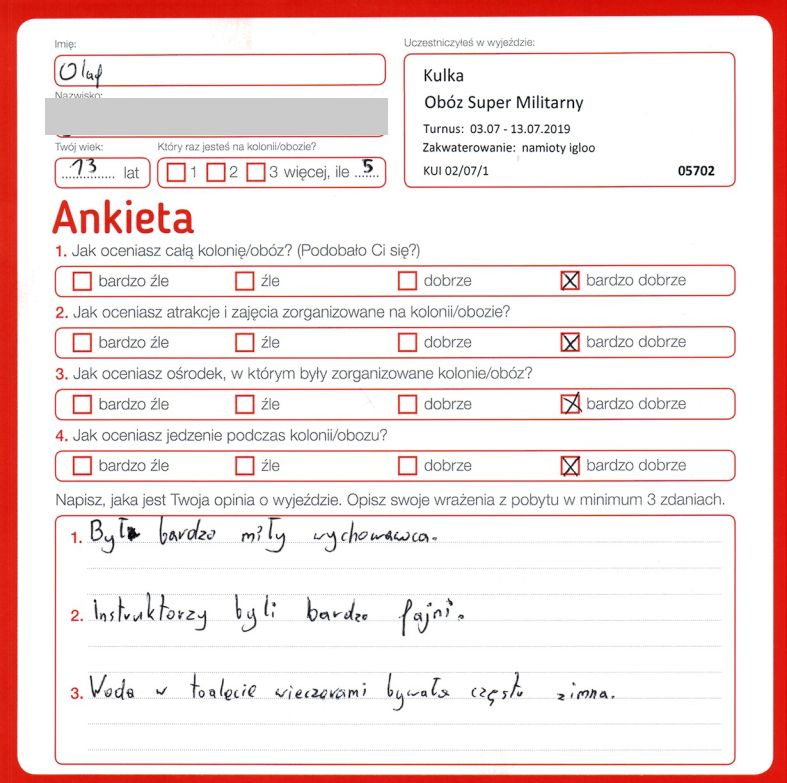 Imię:
Olaf
Nazwisko:
Twój wiek:
13 lat
Który raz jesteś na kolonii/obozie?
1 2 3 więcej, ile 5
Uczestniczyłeś w wyjeździe:
Kulka
Obóz Super Militarny
Turnus: 03.07 - 13.07.2019
Zakwaterowanie: namioty igloo
KUI 02/07/1 05702
Ankieta
1. Jak oceniasz całą kolonię/obóz? (Podobało Ci się?)
bardzo źle źle dobrze bardzo dobrze
2. Jak oceniasz atrakcje i zajęcia zorganizowane na kolonii/obozie?
bardzo źle źle dobrze bardzo dobrze
3. Jak oceniasz ośrodek, w którym były zorganizowane kolonie/obóz?
bardzo źle źle dobrze bardzo dobrze
4. Jak oceniasz jedzenie podczas kolonii/obozu?
bardzo źle źle dobrze bardzo dobrze
Napisz, jaka jest Twoja opinia o wyjeździe. Opisz swoje wrażenia z pobytu w minimum 3 zdaniach.
1. Był bardzo miły wychowawca.
2. Instruktorzy byli bardzo fajni.
3. Woda w toalecie wieczorami bywała często zimna.